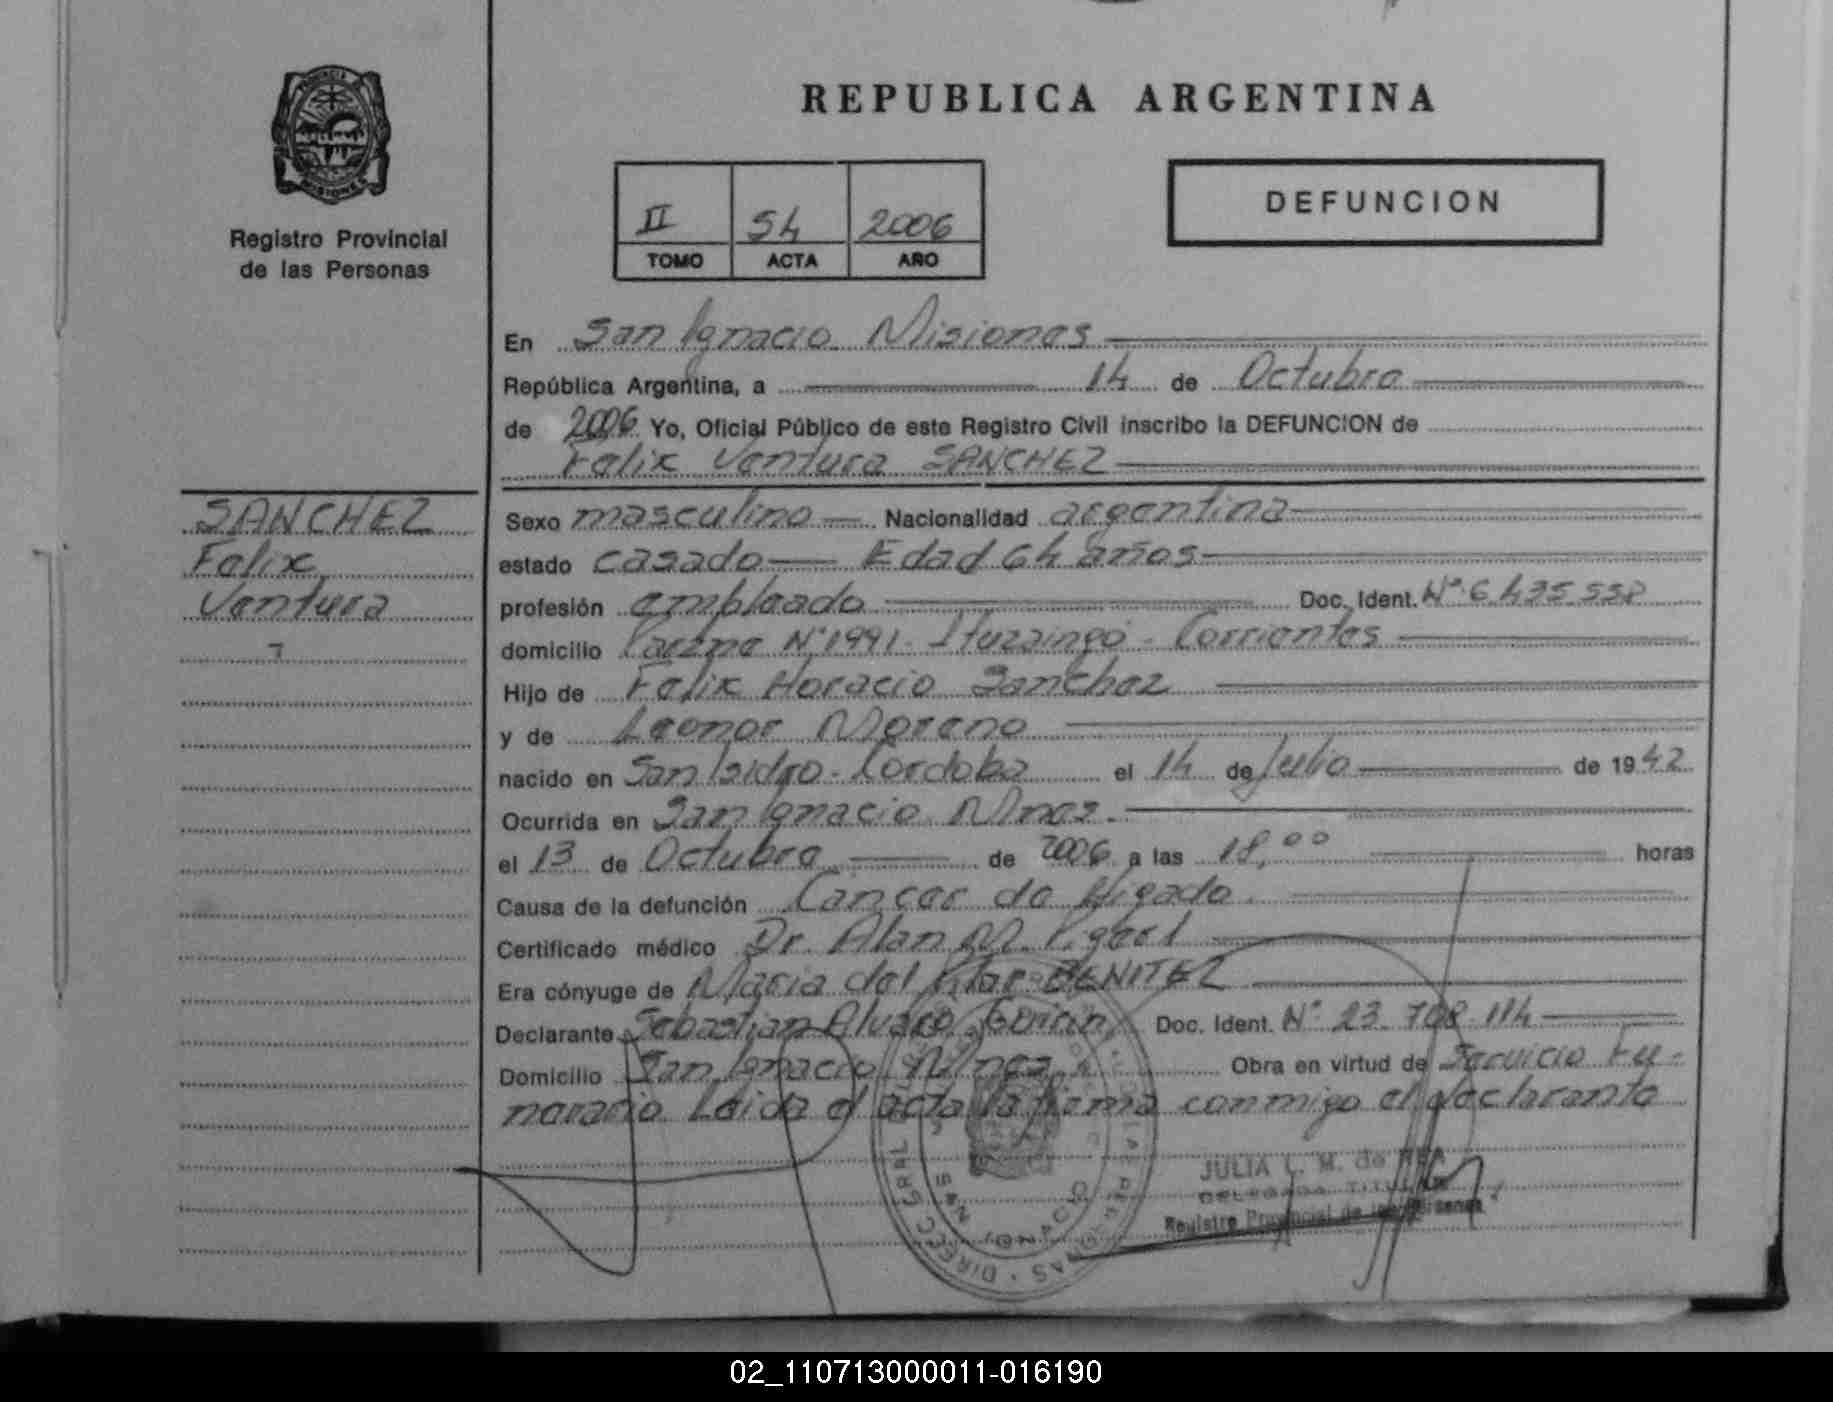 PROVINCIA
MISIONES
Registro Provincial
de las Personas
REPUBLICA ARGENTINA
II 54 2006
TOMO ACTA AÑO
DEFUNCION
En San Ignacio Misiones
República Argentina, a 14 de Octubre
de 2006 Yo, Oficial Público de este Registro Civil inscribo la DEFUNCION de
Felix Ventura SANCHEZ
SANCHEZ
Felix
Ventura
Sexo masculino Nacionalidad argentina
estado casado Edad 64 años
profesión empleado Doc. Ident. Nº 6.435.558
domicilio Nº 1991 - Ituzaingo - Corrientes
Hijo de Felix Horacio Sanchez
y de Leonor Moreno
nacido en San Isidro - Cordoba el 14 de Julio de 1942
Ocurrida en San Ignacio Mnes.
el 13 de Octubre de 2006 a las 18,00 horas
Causa de la defunción Cáncer de hígado.
Certificado médico Dr. Alan M.
Era cónyuge de Maria del Pilar BENITEZ
Declarante Sebastian Alvaro Doc. Ident. Nº 23.708.114
Domicilio San Ignacio Mnes Obra en virtud de Servicio Fu-
nerario Leida el acta la firma conmigo el declarante
JULIA L. M. de
DELEGADA TITULAR
Registro Provincial de las Personas
SAN IGNACIO
02_110713000011-016190